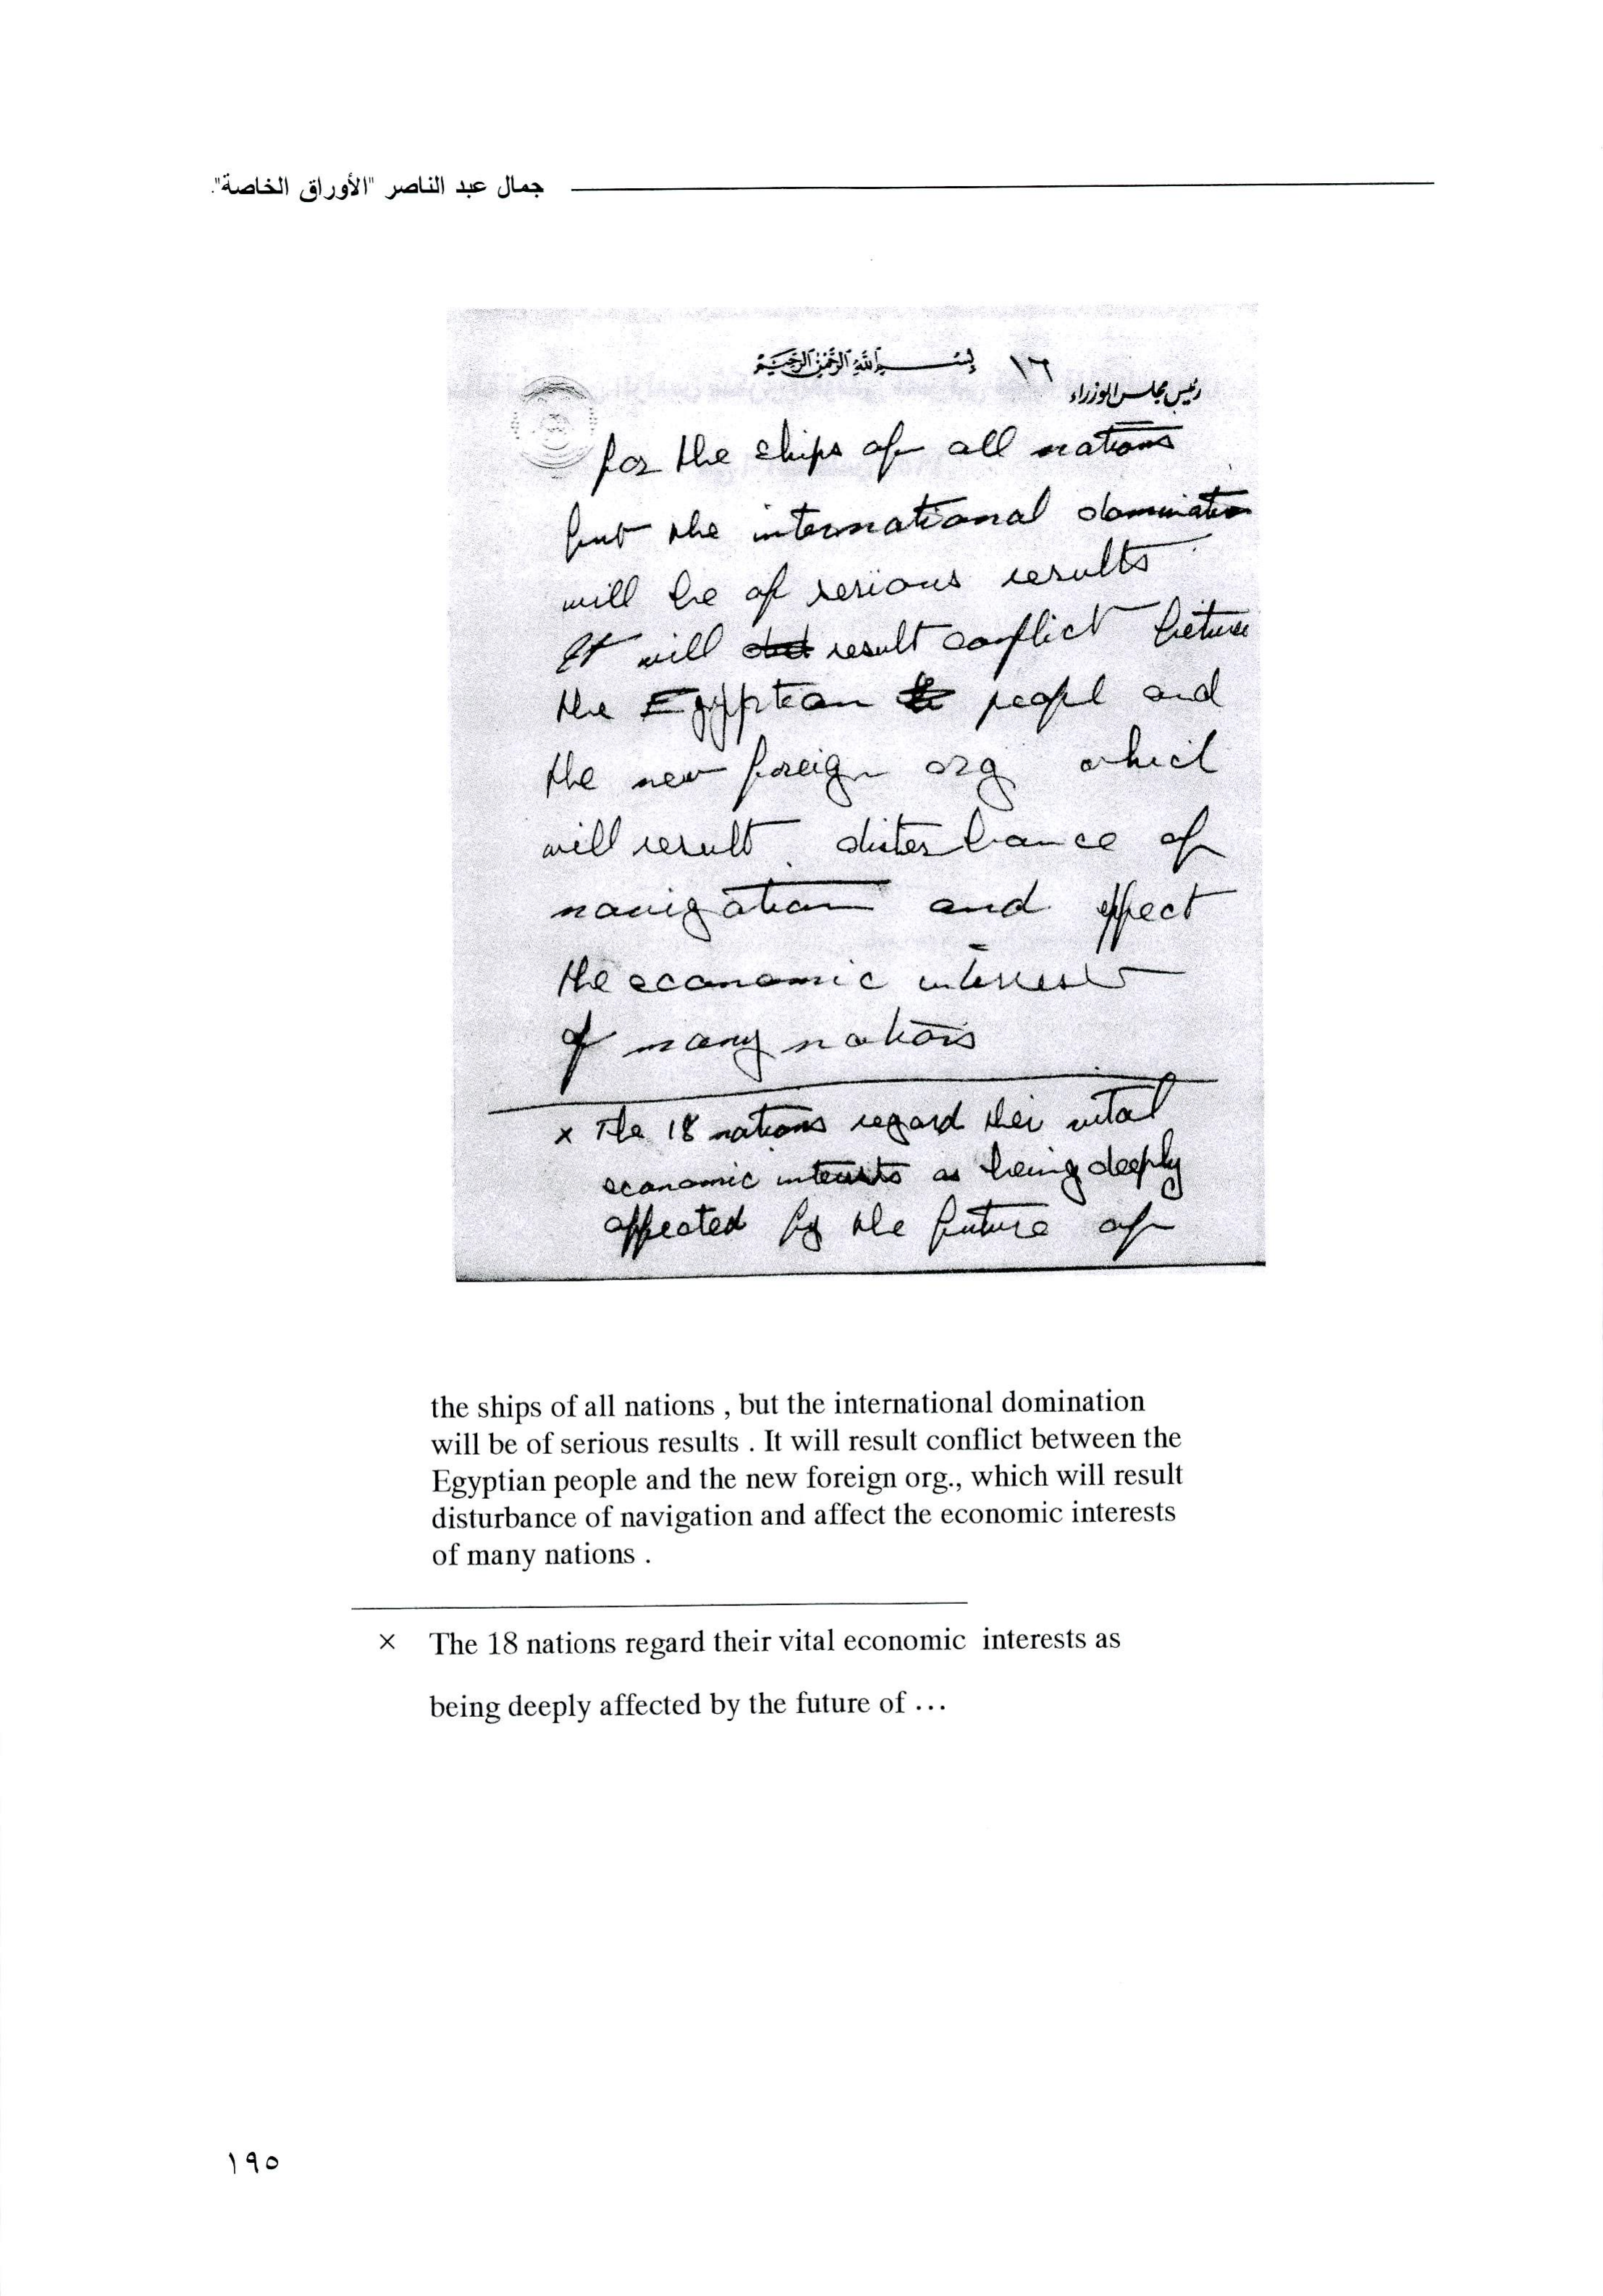 جمال عبد الناصر "الأوراق الخاصة".
بسم الله الرحمن الرحيم ١٦
رئيس مجلس الوزراء
for the ships of all nations
but the international domination
will be of serious results
It will result conflict between
the Egyptian peopl and
the new foreign org which
will result disterbance of
navigation and effect
the economic interests
of many nations
x The 18 nations regard their vital
economic interests as being deeply
affected by the future of
the ships of all nations , but the international domination
will be of serious results . It will result conflict between the
Egyptian people and the new foreign org., which will result
disturbance of navigation and affect the economic interests
of many nations .
× The 18 nations regard their vital economic interests as
being deeply affected by the future of ...
١٩٥